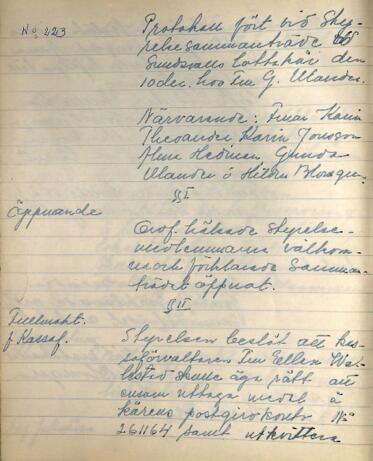 No 223
Protokoll fört vid Sty-
relsesammanträde
Sundsvalls Lottakår den
10 dec. hos Fru G. Ulander.
Närvarande: Fruar Karin
Theoander Karin Jonsson
Hedman, Gunda
Ulander o Hildur
§ I
Öppnande
Ordf. hälsade Styrelse-
medlemmarna välkom-
na och förklarade Samman-
trädet öppnat.
§ II
Fullmakt.
f Kassaf.
Styrelsen beslöt att kas-
saförvaltaren Fru Ellen
skulle äga rätt att
ensam uttaga medel å
kårens postgirokonto No
261164 samt utkvittera